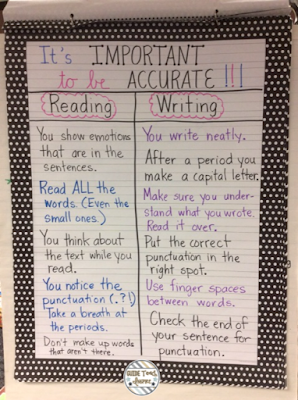 It's IMPORTANT
to be ACCURATE!!!
Reading
You show emotions
that are in the
sentences.
Read ALL the
words. (Even the
small ones.)
You think about
the text while you
read.
You notice the
punctuation (.?!)
Take a breath at
the periods.
Don't make up words
that aren't there.
Writing
You write neatly.
After a period you
make a capital letter.
Make sure you under-
stand what you wrote.
Read it over.
Put the correct
punctuation in the
right spot.
Use finger spaces
between words.
Check the end of
your sentence for
punctuation.